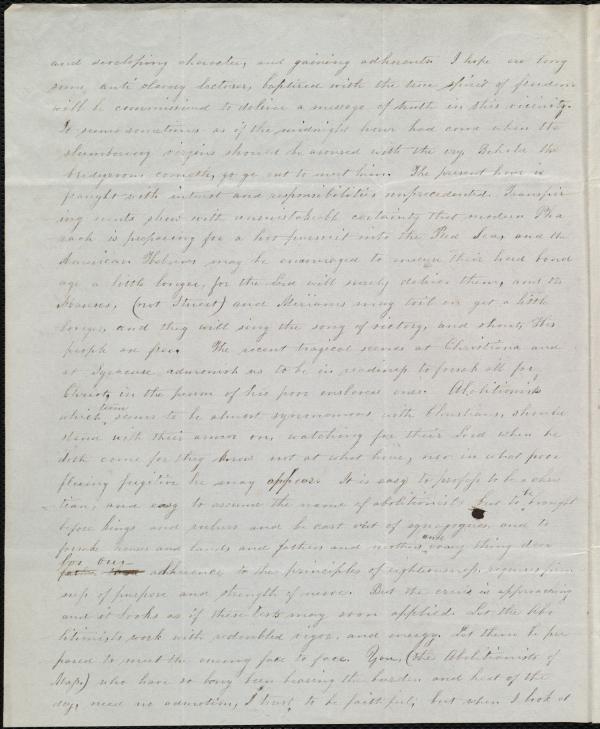 and developing character, and gaining adherents I hope ere long
some anti slavery lecturer, baptized with the true spirit of freedom
will be commissioned to deliver a message of truth in this vicinity.
It seems sometimes as if the midnight hour had come when the
slumbering virgins should be aroused with the cry Behold the
bridegroom cometh, go ye out to meet him. The present hour is
fraught with interest and responsibilities unprecedented. Transpir
ing events show with unmistakable certainty that modern Pha
raoh is preparing for a hot pursuit into the Red Sea, and the
American Hebrews may be encouraged to endure their hard bond
age a little longer, for the Lord will surely deliver them, and the
Moseses, (not Stuart) and Miriams may toil on yet a little
longer, and they will sing the song of victory, and shout, The
people are free. The recent tragical scenes at Christiana and
at Syracuse admonish us to be in readiness to forsake all for
Christ, in the person of his poor enslaved ones. Abolitionists
which term seems to be almost synonomous with Christians, should
stand with their armor on, watching for their Lord when he
doth come for they know not at what hour, nor in what poor
fleeing fugitive he may appear. It is easy to profess to be a chris
tian, and easy to assume the name of abolitionist but to be brought
before kings and rulers and be cast out of synagogues and to
forsake houses and lands and fathers and mothers and every thing dear
for our adherence to the principles of righteousness, requires firm
ness of purpose and strength of nerve. But the crisis is approaching
and it looks as if these tests may soon applied. Let the abo
litionists work with redoubled vigor, and energy. Let them be pre
pared to meet the enemy face to face. You, (the Abolitionists of
Mass.) who have so long been bearing the burden and heat of the
day, need no admonition, I trust, to be faithful; but when I look at